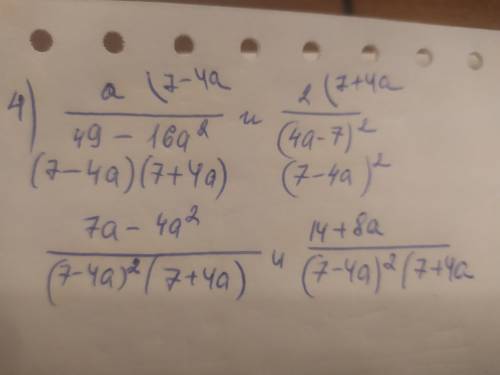 4) a (7-4a / 49 - 16a² и 2 (7+4a / (4a-7)²
(7-4a)(7+4a) (7-4a)²
7a - 4a² / (7-4a)²(7+4a) и 14+8a / (7-4a)²(7+4a